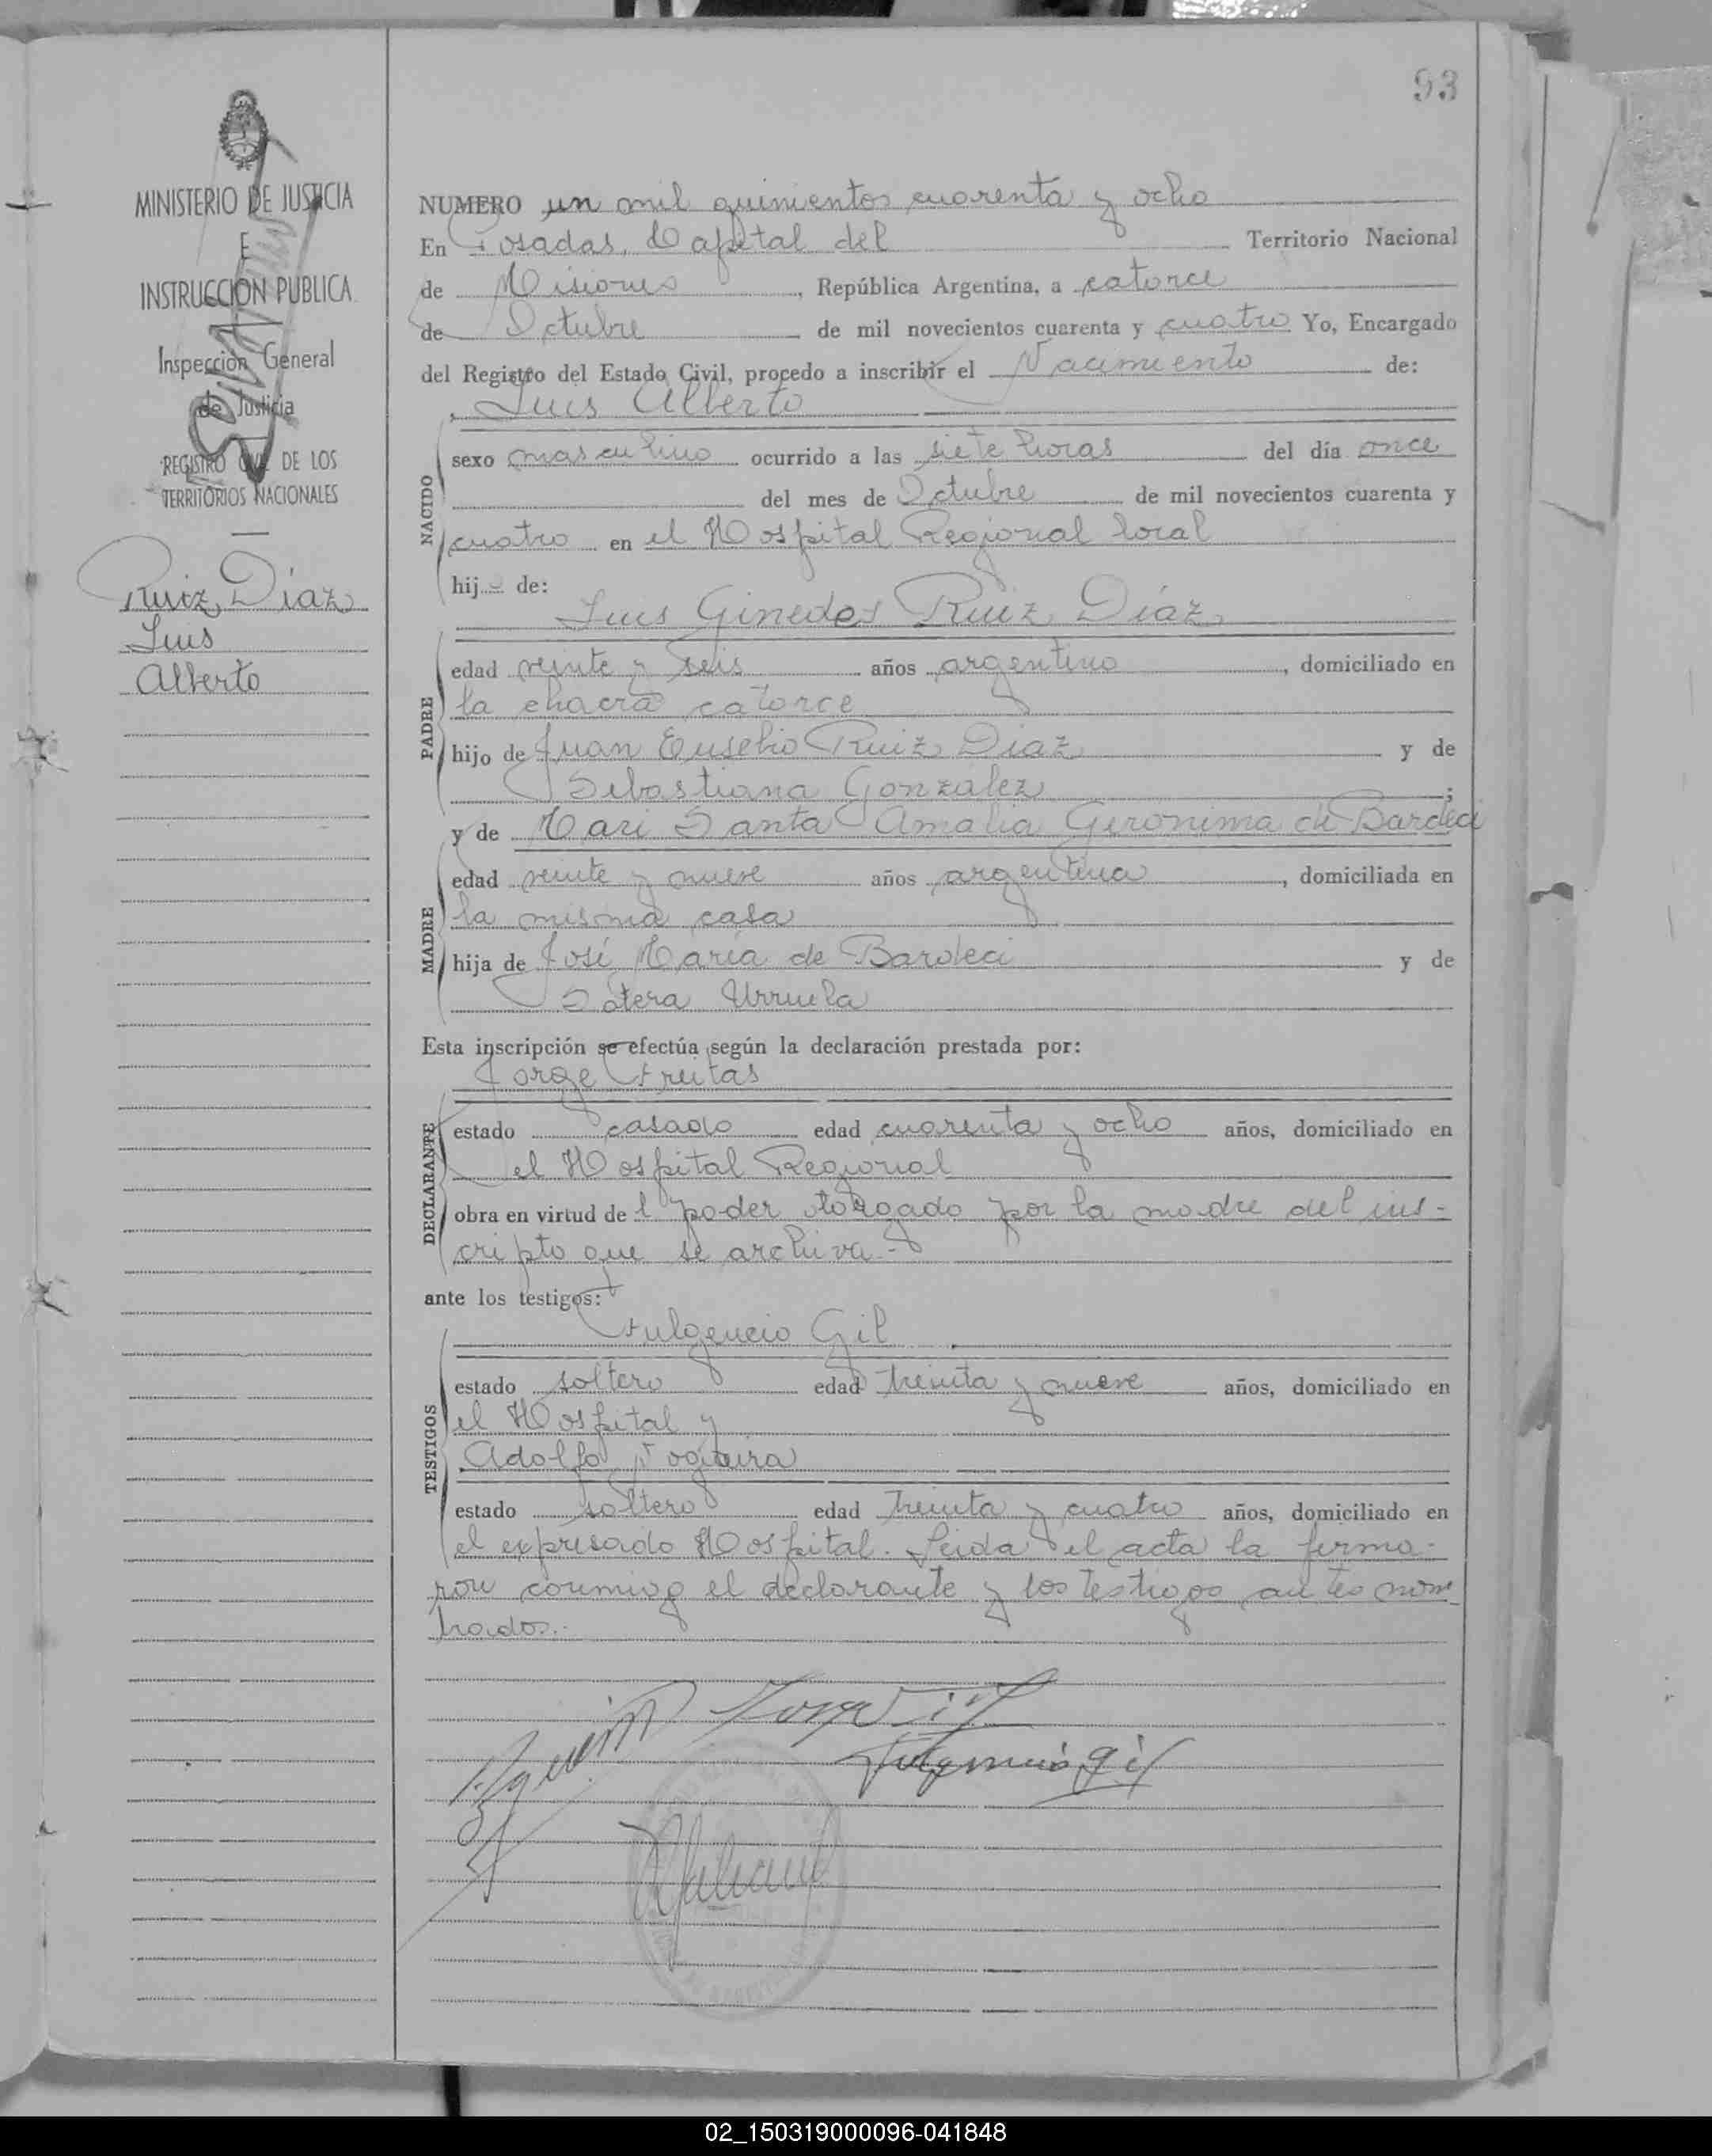 93
MINISTERIO DE JUSTICIA
E
INSTRUCCION PUBLICA
Inspección General
de Justicia
REGISTRO CIVIL DE LOS
TERRITORIOS NACIONALES
Ruiz Díaz
Luis
Alberto
NUMERO un mil quinientos cuarenta y ocho
En Posadas, Capital del Territorio Nacional
de Misiones, República Argentina, a catorce
de Octubre de mil novecientos cuarenta y cuatro Yo, Encargado
del Registro del Estado Civil, procedo a inscribir el Nacimiento de:
Luis Alberto
NACIDO
sexo masculino ocurrido a las siete horas del día once
del mes de Octubre de mil novecientos cuarenta y
cuatro en el Hospital Regional local
hijo de:
Luis Ginedes Ruiz Díaz
PADRE
edad veinte y seis años argentino, domiciliado en
la chacra catorce
hijo de Juan Eusebio Ruiz Diaz y de
Sebastiana Gonzalez;
y de Mari Santa Amalia Geronima de Bardeci
MADRE
edad veinte y nueve años argentina, domiciliada en
la misma casa
hija de José María de Bardeci y de
Sotera Urruela
Esta inscripción se efectúa según la declaración prestada por:
Jorge Freitas
DECLARANTE
estado casado edad cuarenta y ocho años, domiciliado en
el Hospital Regional
obra en virtud del poder otorgado por la madre del ins-
cripto que se archiva.-
ante los testigos:
Fulgencio Gil
TESTIGOS
estado soltero edad treinta y nueve años, domiciliado en
el Hospital y
Adolfo Nogueira
estado soltero edad treinta y cuatro años, domiciliado en
el expresado Hospital. Leida el acta la firma-
ron conmigo el declarante y los testigos antes nom
brados.-
Fulgencio Gil
02_150319000096-041848